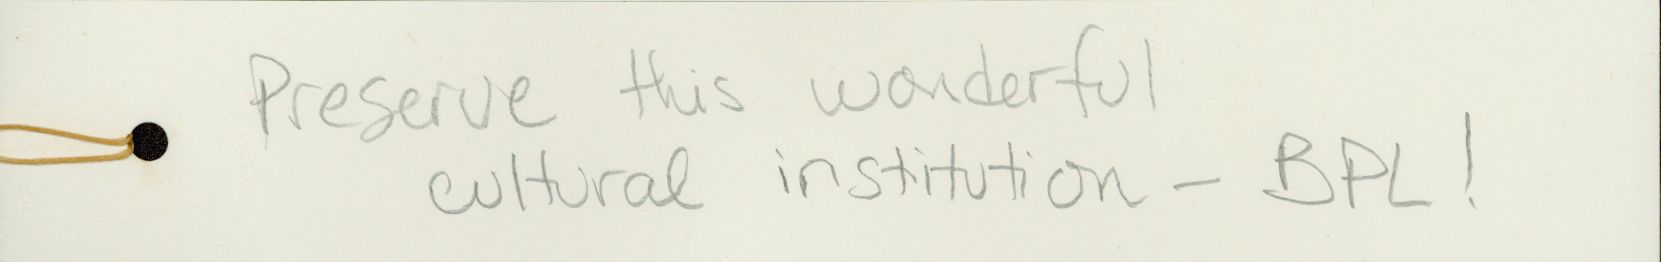 Preserve this wonderful
cultural institution - BPL!